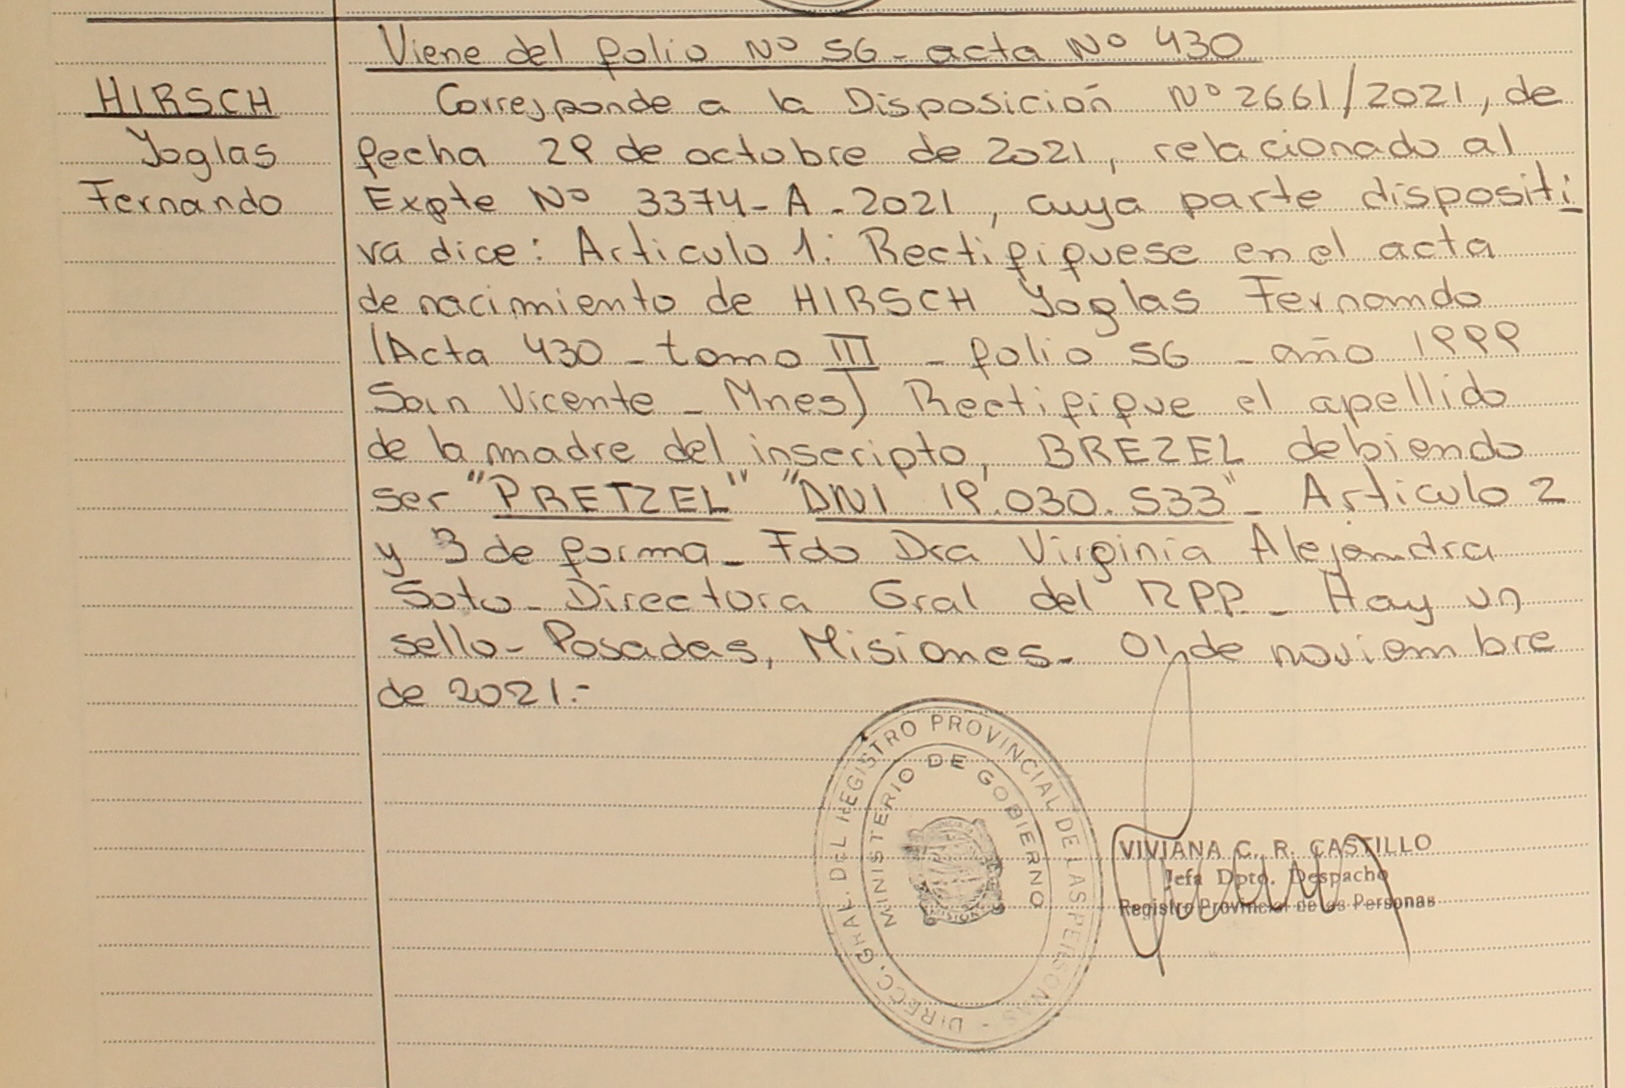 Viene del folio Nº 56 - acta Nº 430
HIRSCH
Yoglas
Fernando
Corresponde a la Disposición Nº 2661/2021, de
fecha 29 de octubre de 2021, relacionado al
Expte Nº 3374-A-2021, cuya parte dispositi
va dice: Articulo 1: Rectifiquese en el acta
de nacimiento de HIRSCH Yoglas Fernando
(Acta 430 - tomo III - folio 56 - año 1999
San Vicente - Mnes) Rectifique el apellido
de la madre del inscripto, BREZEL debiendo
ser "PRETZEL" "DNI 19.030.533" - Articulo 2
y 3 de forma - Fdo Dra Virginia Alejandra
Soto - Directora Gral del RPP - Hay un
sello - Posadas, Misiones - 01 de noviembre
de 2021.-
DIRECC. GRAL. DEL REGISTRO PROVINCIAL DE LAS PERSONAS -
MINISTERIO DE GOBIERNO
VIVIANA C. R. CASTILLO
Jefa Dpto. Despacho
Registro Provincial de las Personas